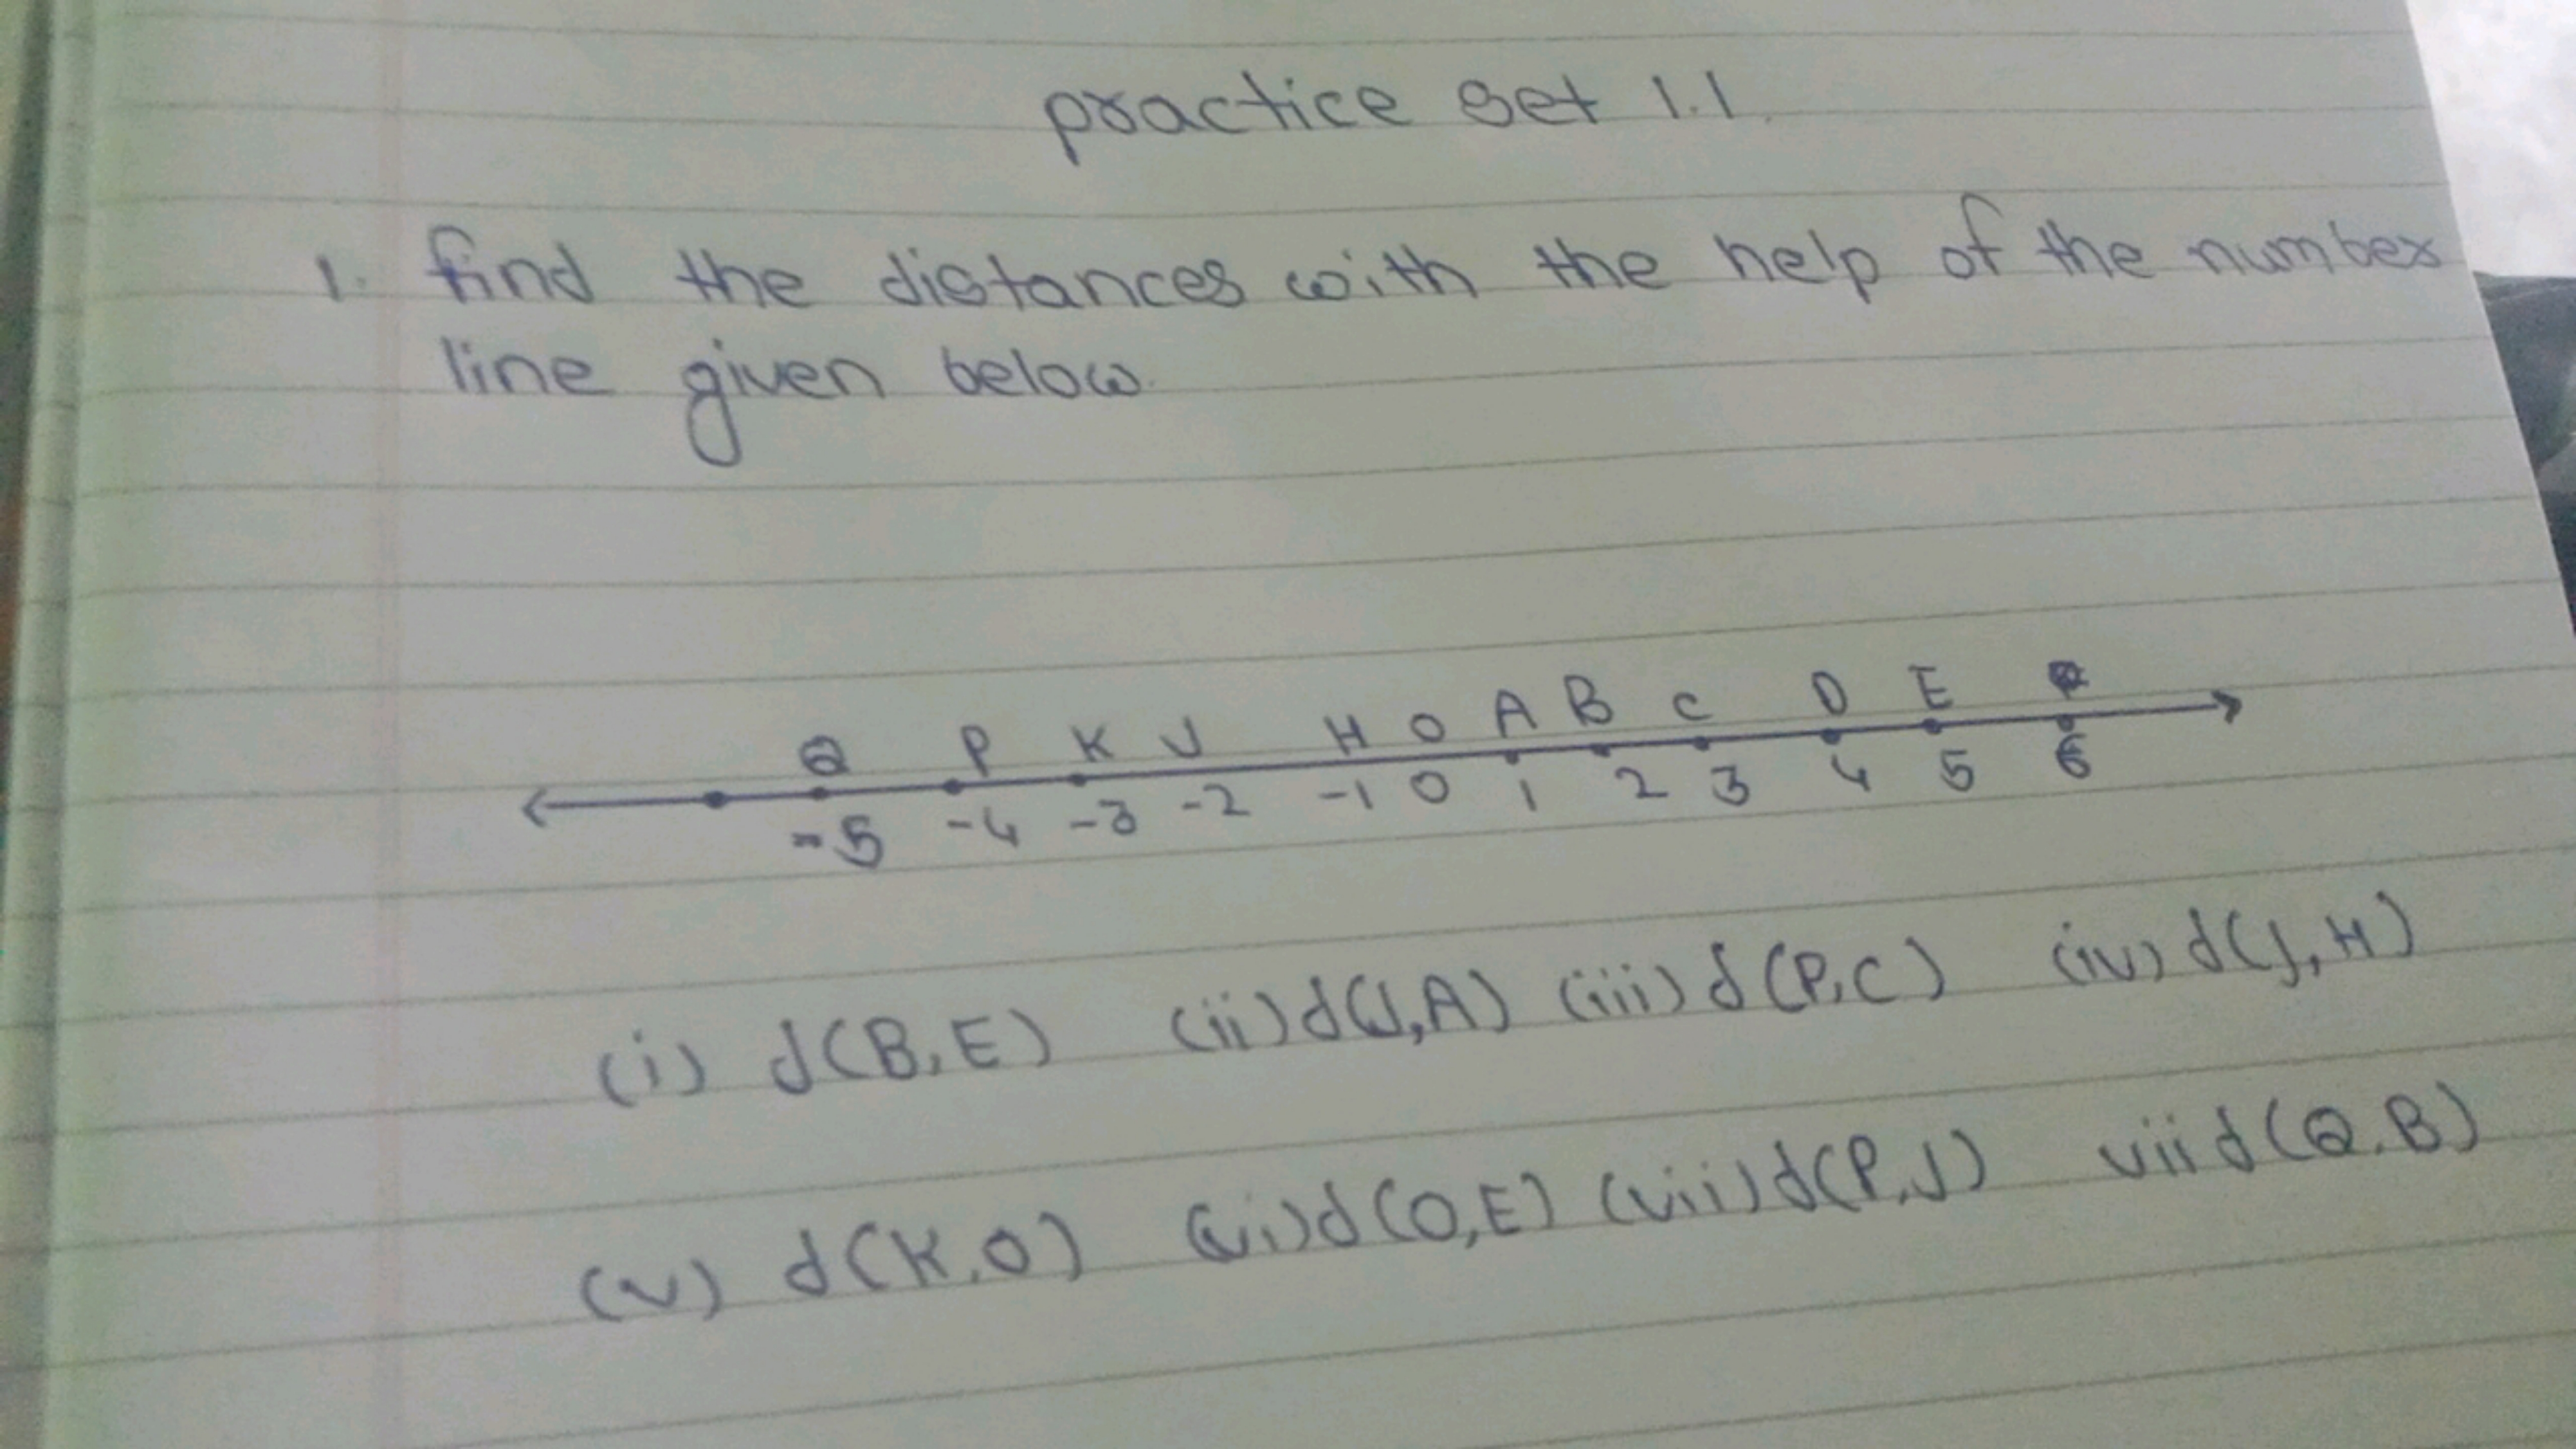 practice set 1.1.
1. find the distances with the help of the number
line given below.
Q P K J H O A B C D E
-5 -4 -3 -2 -1 0 1 2 3 4 5 6
(i) d(B,E) (ii) d(J,A) (iii) d(P,C) (iv) d(J,H)
(v) d(K,O) (vi) d(O,E) (vii) d(P,J) vii d(Q.B)